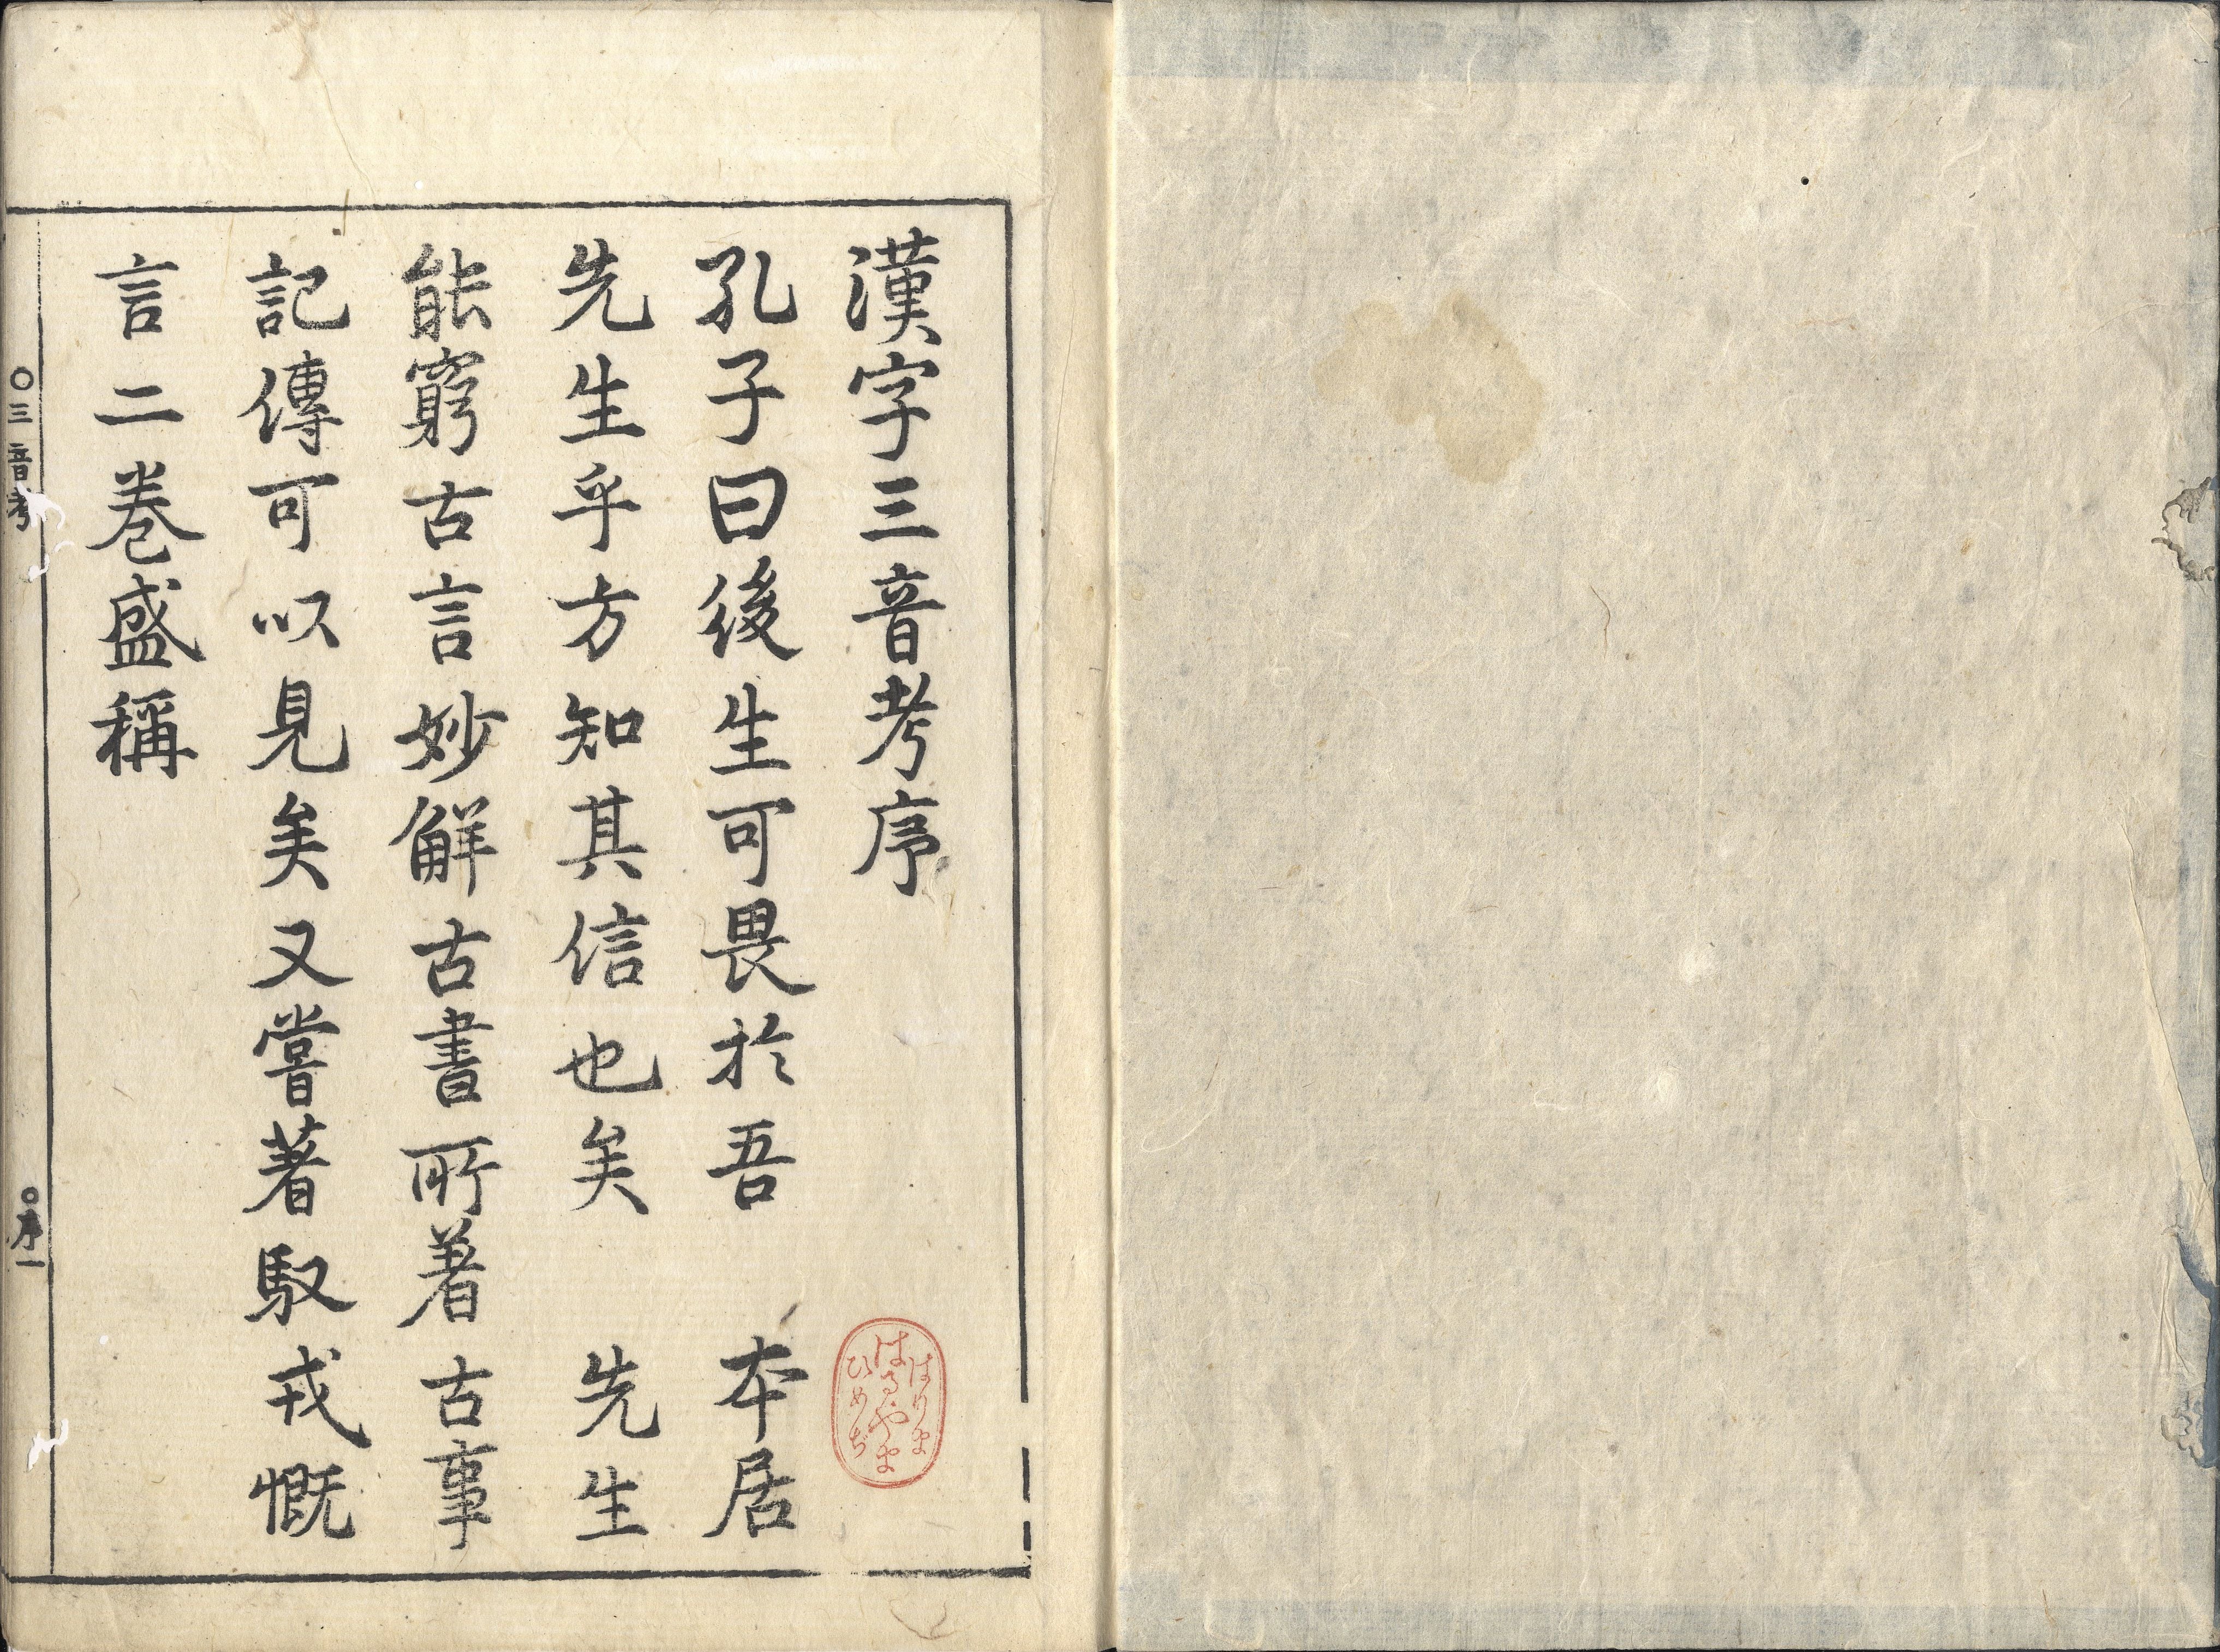 漢字三音考序
孔子曰後生可畏於吾　本居
先生乎方知其信也矣　先生
能窮古言妙解古書所著古事
記傳可以見矣又嘗著馭戎慨
言二卷盛稱
〇三音考
〇序一
はりま
はるやま
ひめぢ